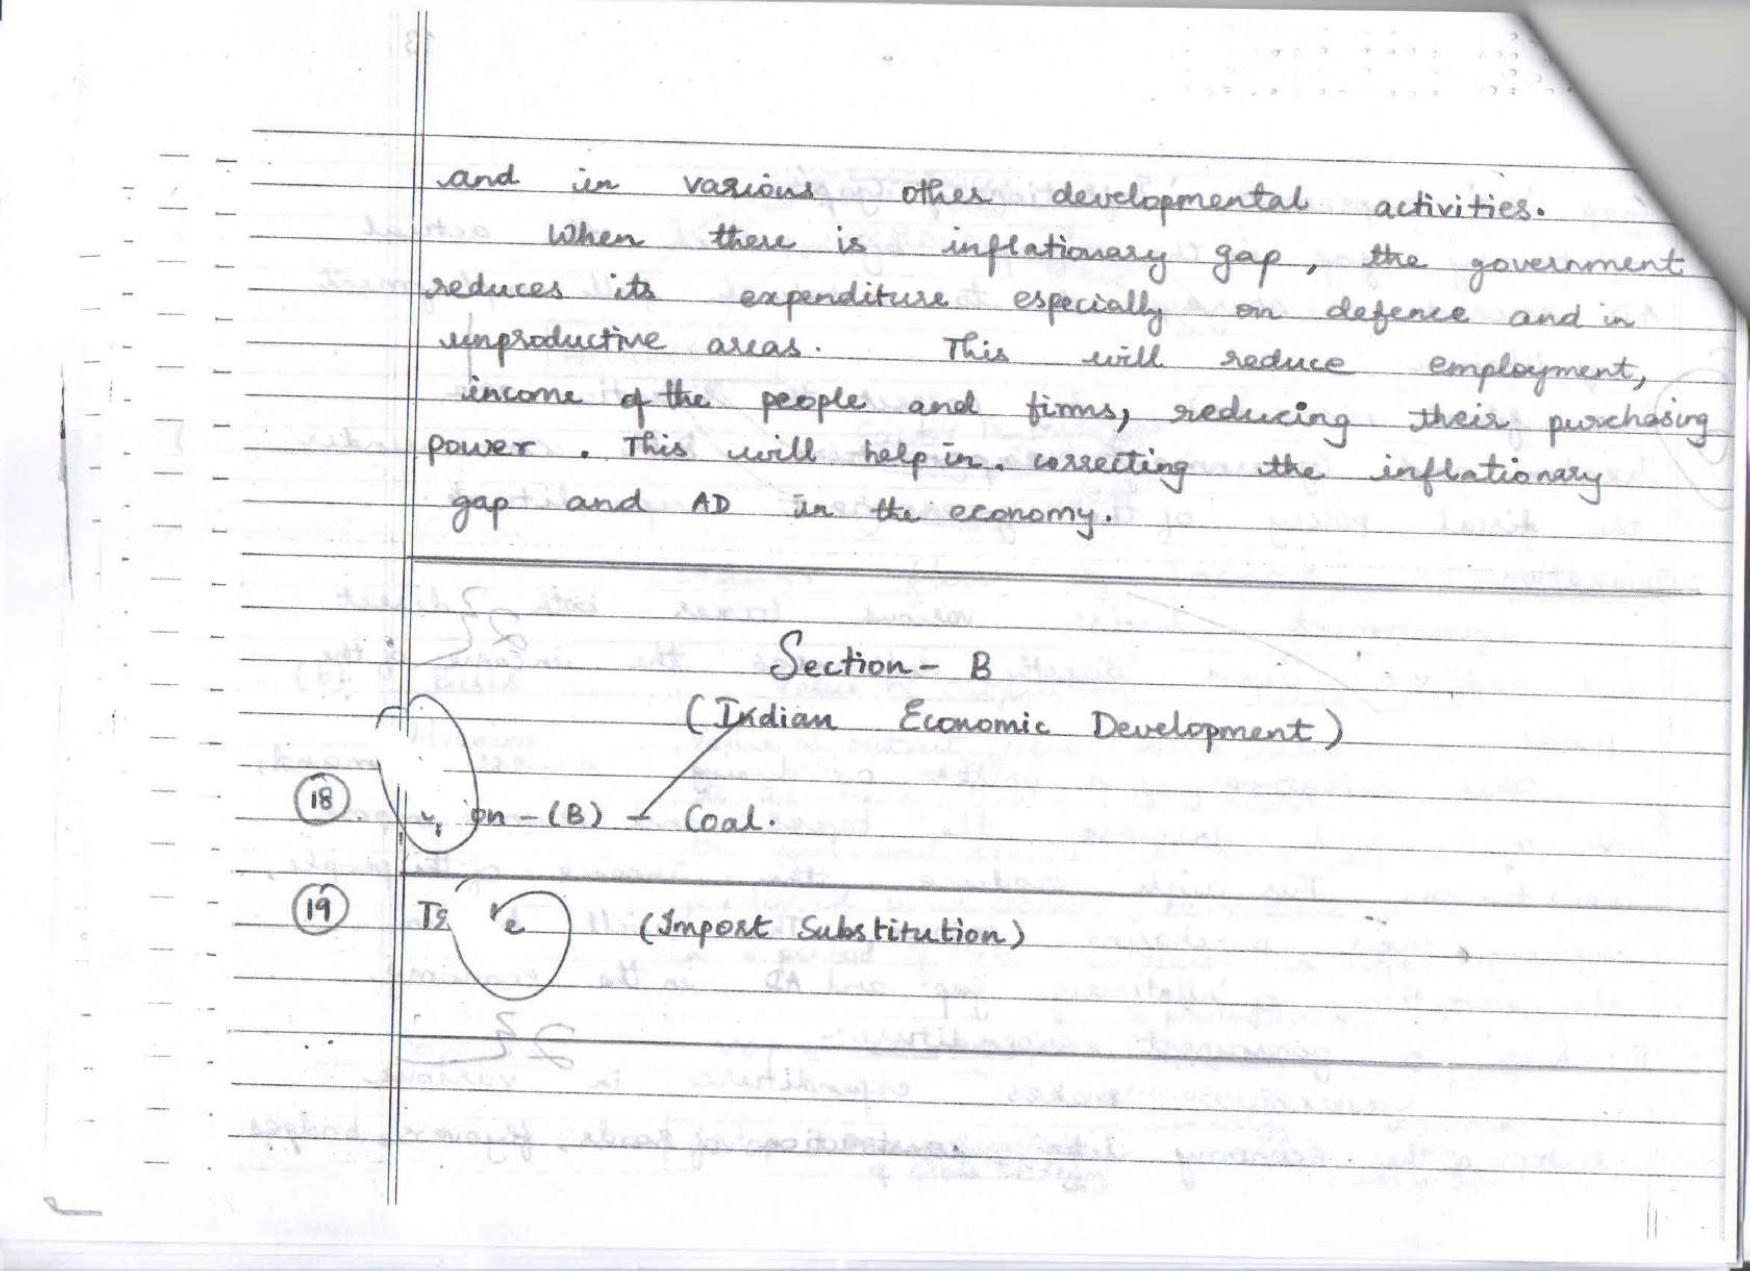 and in various other developmental activities.
When there is inflationary gap, the government
reduces its expenditure especially on defence and in
unproductive areas. This will reduce employment,
income of the people and firms, reducing their purchasing
power. This will help in. correcting the inflationary
gap and AD in the economy.
Section - B
(Indian Economic Development)
18 on - (B) - Coal.
19 (Import Substitution)